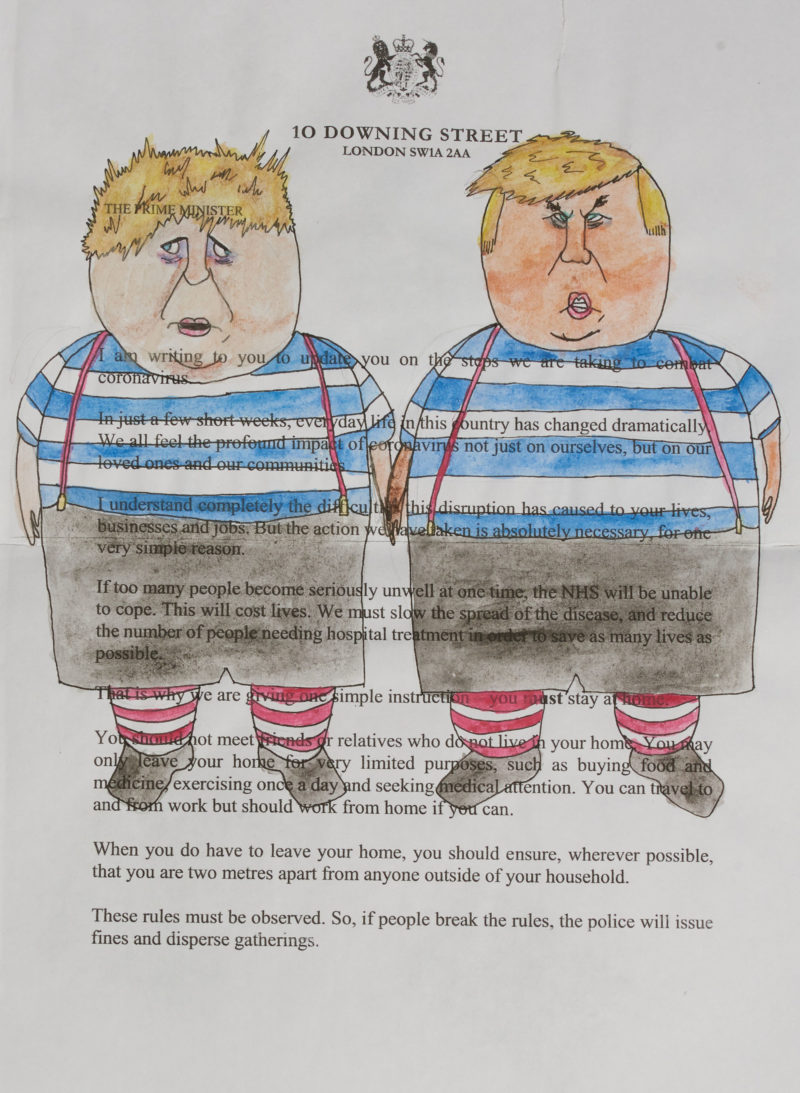 10 DOWNING STREET
LONDON SW1A 2AA
THE PRIME MINISTER
I am writing to you to update you on the steps we are taking to combat
coronavirus.
In just a few short weeks, everyday life in this country has changed dramatically.
We all feel the profound impact of coronavirus not just on ourselves, but on our
loved ones and our communities.
I understand completely the difficulties this disruption has caused to your lives,
businesses and jobs. But the action we have taken is absolutely necessary, for one
very simple reason.
If too many people become seriously unwell at one time, the NHS will be unable
to cope. This will cost lives. We must slow the spread of the disease, and reduce
the number of people needing hospital treatment in order to save as many lives as
possible.
That is why we are giving one simple instruction – you must stay at home.
You should not meet friends or relatives who do not live in your home. You may
only leave your home for very limited purposes, such as buying food and
medicine, exercising once a day and seeking medical attention. You can travel to
and from work but should work from home if you can.
When you do have to leave your home, you should ensure, wherever possible,
that you are two metres apart from anyone outside of your household.
These rules must be observed. So, if people break the rules, the police will issue
fines and disperse gatherings.